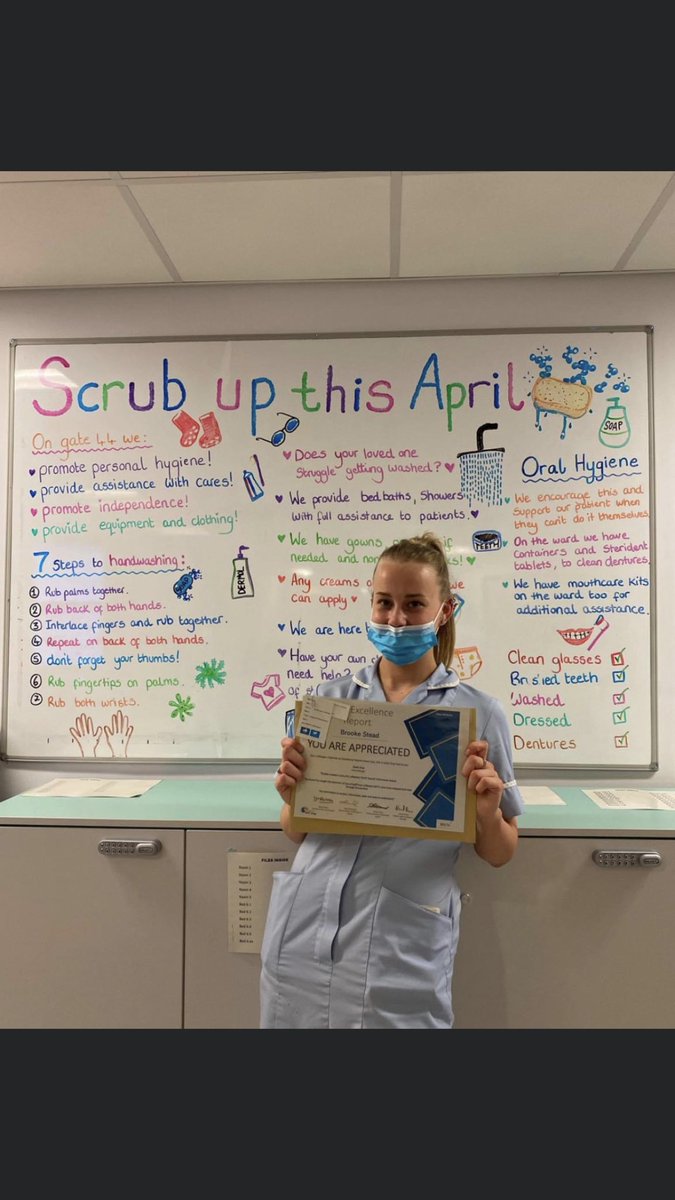 Scrub up this April
On gate 44 we:
promote personal hygiene!
provide assistance with cares!
promote independence!
provide equipment and clothing!
7 Steps to handwashing:
1 Rub palms together.
2 Rub back of both hands.
3 Interlace fingers and rub together.
4 Repeat on back of both hands.
5 don't forget your thumbs!
6 Rub fingertips on palms.
7 Rub both wrists.
DERMOL
Does your loved one
struggle getting washed?
We provide bedbaths, showers
with full assistance to patients.
We have gowns if
needed and
Any creams we
can apply
We are here
Have your own
need help?
TEETH
SOAP
Oral Hygiene
We encourage this and
support our patient when
they can't do it themselves.
On the ward we have
containers and steredent
tablets, to clean dentures.
We have mouthcare kits
on the ward too for
additional assistance.
Clean glasses
Brushed teeth
Washed
Dressed
Dentures
Excellence
Report
Brooke Stead
YOU ARE APPRECIATED
FILES INSIDE